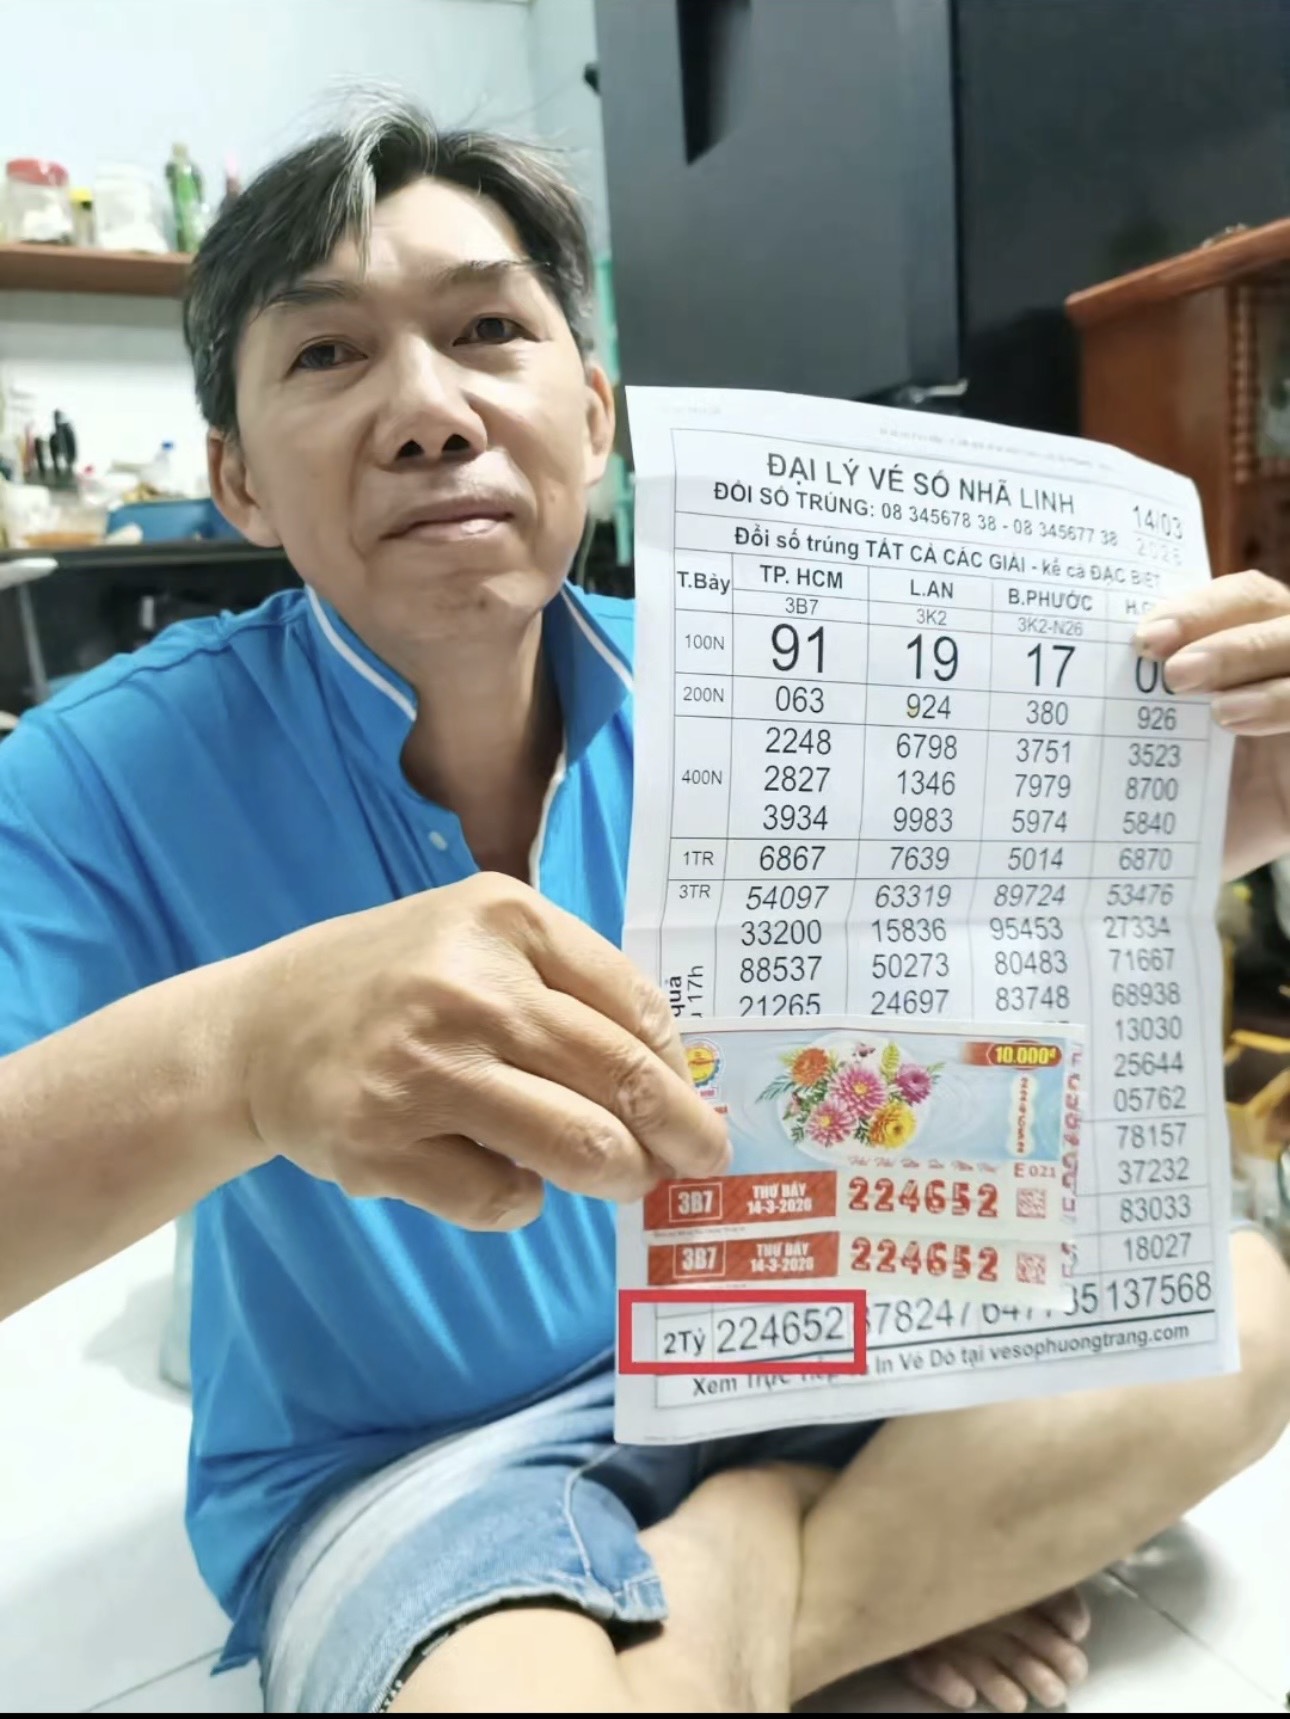 ĐẠI LÝ VÉ SỐ NHÃ LINH
14/03
ĐỔI SỐ TRÚNG: 08 345678 38 - 08 345677 38
Đổi số trúng TẤT CẢ CÁC GIẢI - kể cả ĐẶC BIỆT
T.Bảy TP. HCM L.AN B.PHƯỚC
3B7 3K2 3K2-N26
100N 91 19 17
200N 063 924 380 926
2248 6798 3751 3523
400N 2827 1346 7979 8700
3934 9983 5974 5840
1TR 6867 7639 5014 6870
3TR 54097 63319 89724 53476
33200 15836 95453 27334
88537 50273 80483 71667
21265 24697 83748 68938
17h
10.000đ
13030
25644
05762
78157
E 021
37232
3B7 THỨ BẢY 14-3-2020 224652
83033
3B7 THỨ BẢY 14-3-2020 224652
18027
2Tỷ 224652 78247 137568
Xem Trực In Vé Dò tại vesophuongtrang.com